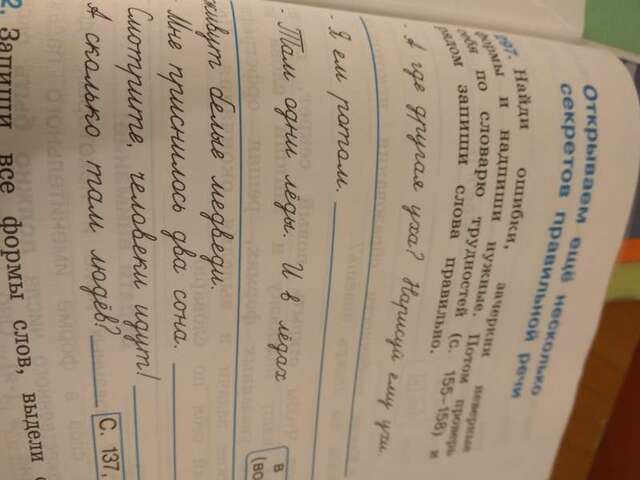 Открываем ещё несколько
секретов правильной речи
297. Найди ошибки, зачеркни неверные
формы и надпиши нужные. Потом проверь
себя по словарю трудностей (с. 155–158) и
рядом запиши слова правильно.
. А где другая уха? Нарисуй ему ухи.
. Я ем ротом.
. Там одни лёды. И в лёдах
живут белые медведи.
. Мне приснилось два сона.
Смотрите, человеки идут!
А сколько там людёв?
в
(во
С. 137,
2. Запиши все формы слов, выдели